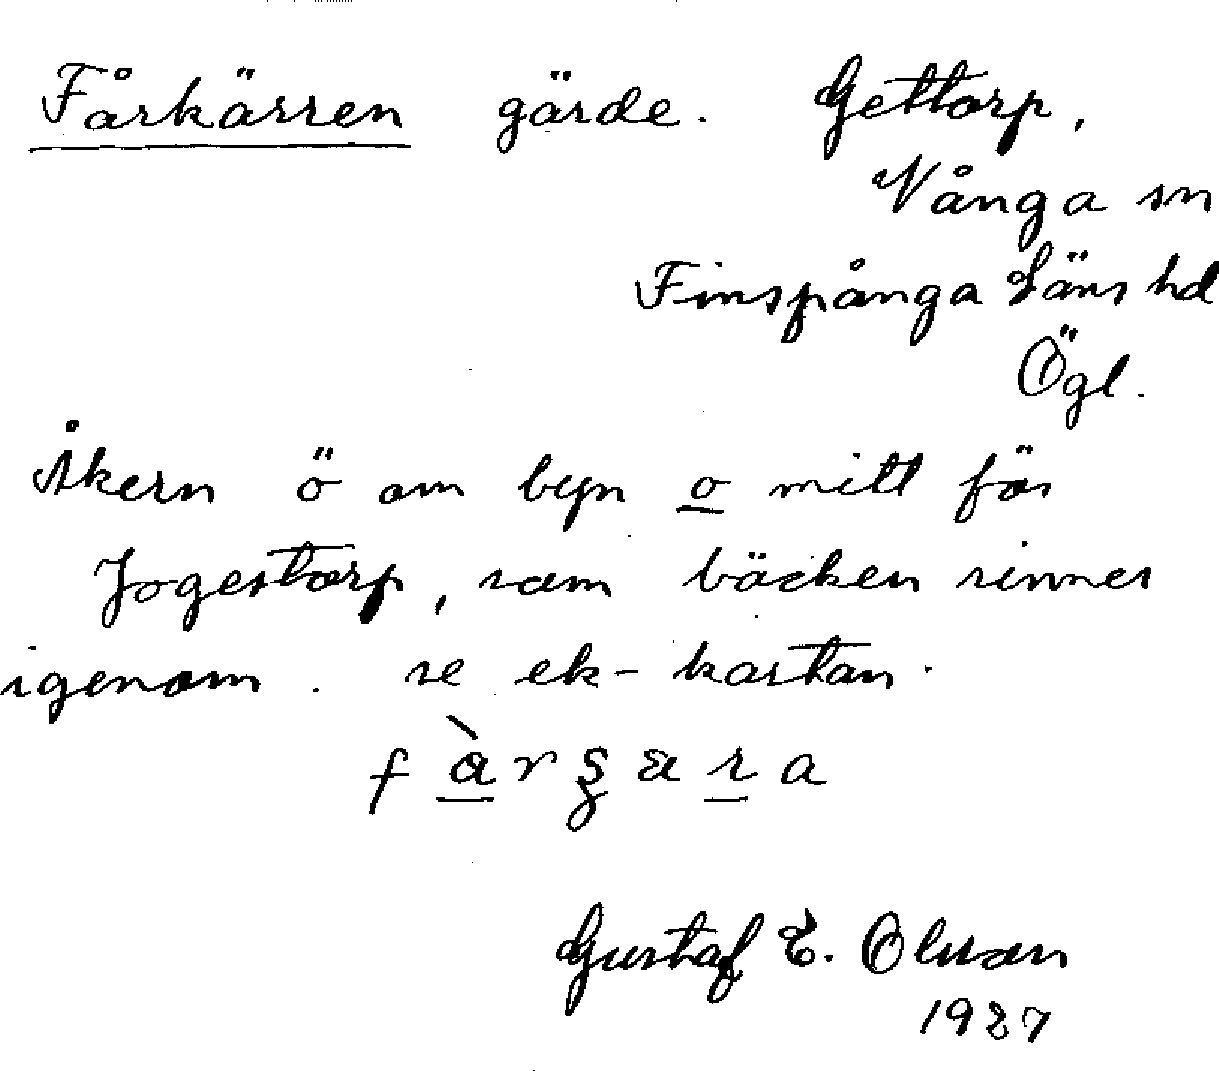 Fårkärren gärde. Gettorp,
Vånga sn
Finspånga Läns hd
Ögl.
Åkern ö om byn o mitt för
Jogestorp, som bäcken rinner
igenom. se ek-kartan.
Gustaf E. Olsson
1927